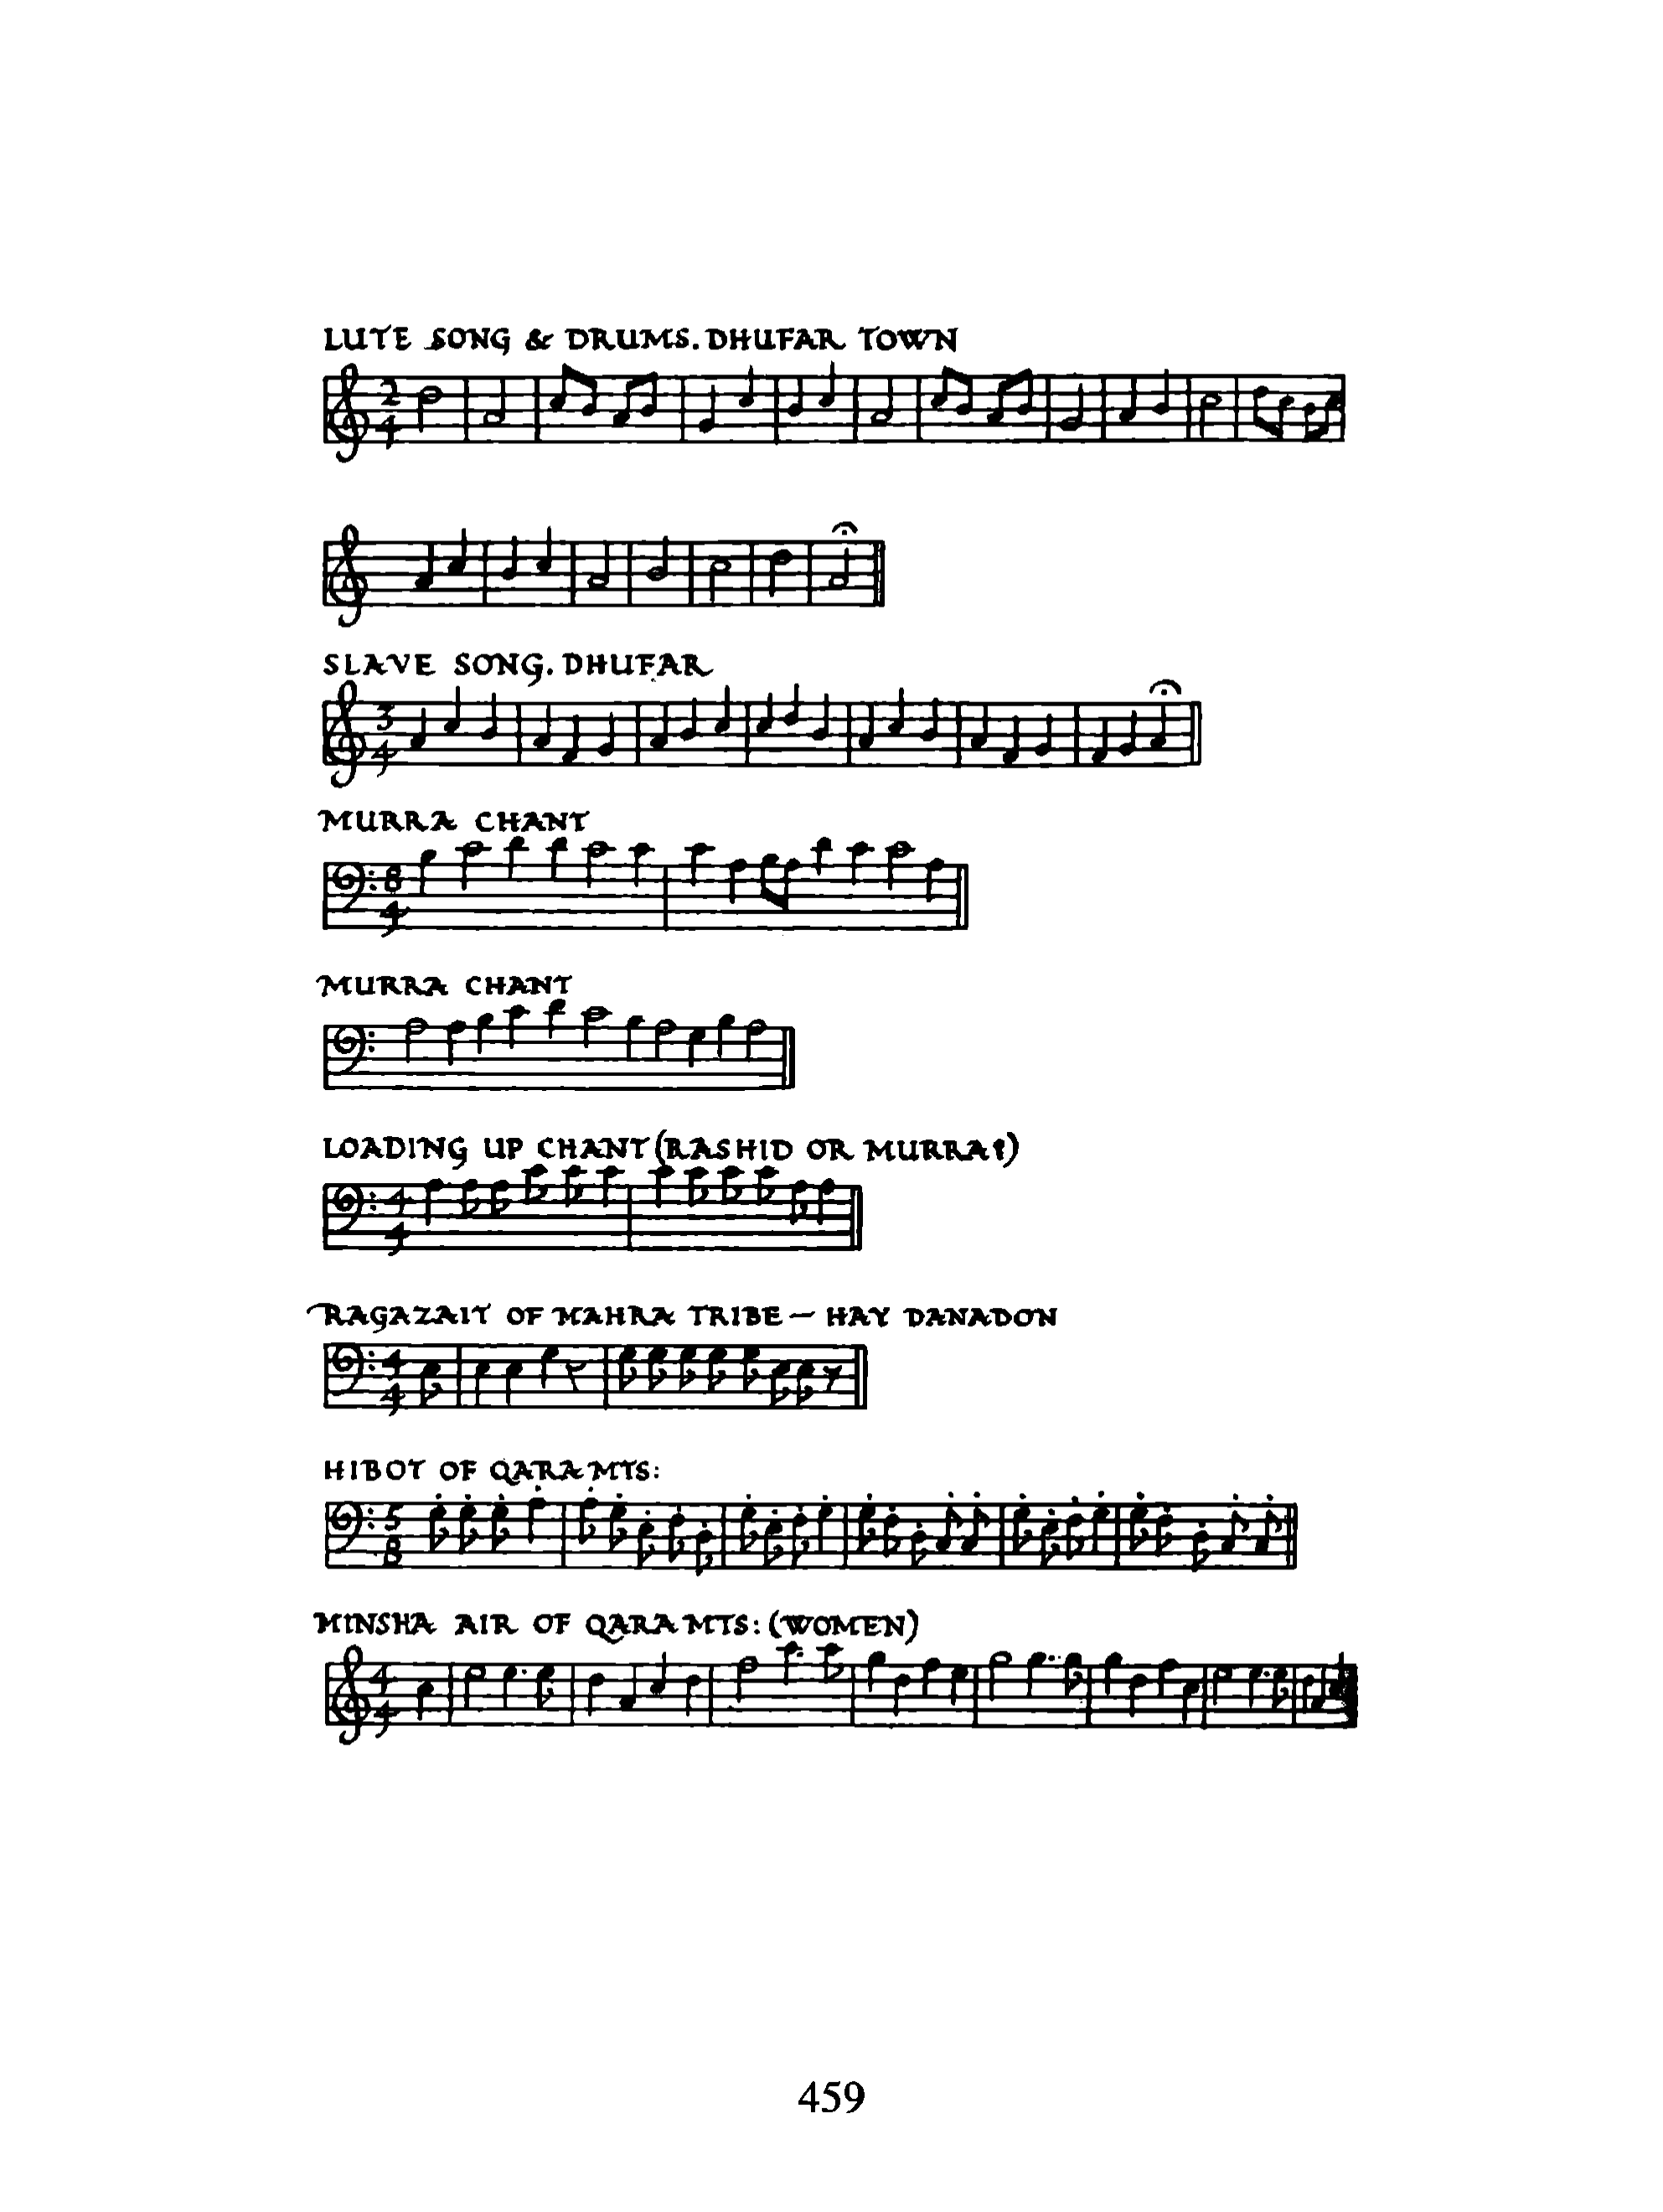 LUTE SONG & DRUMS. DHUFAR TOWN
2
4
SLAVE SONG. DHUFAR
3
4
MURRA CHANT
8
4
MURRA CHANT
LOADING UP CHANT (RASHID OR MURRA?)
4
4
RAGAZAIT OF MAHRA TRIBE — HAY DANADON
4
4
HIBOT OF QARA MTS:
5
8
MINSHA AIR OF QARA MTS: (WOMEN)
4
4
459